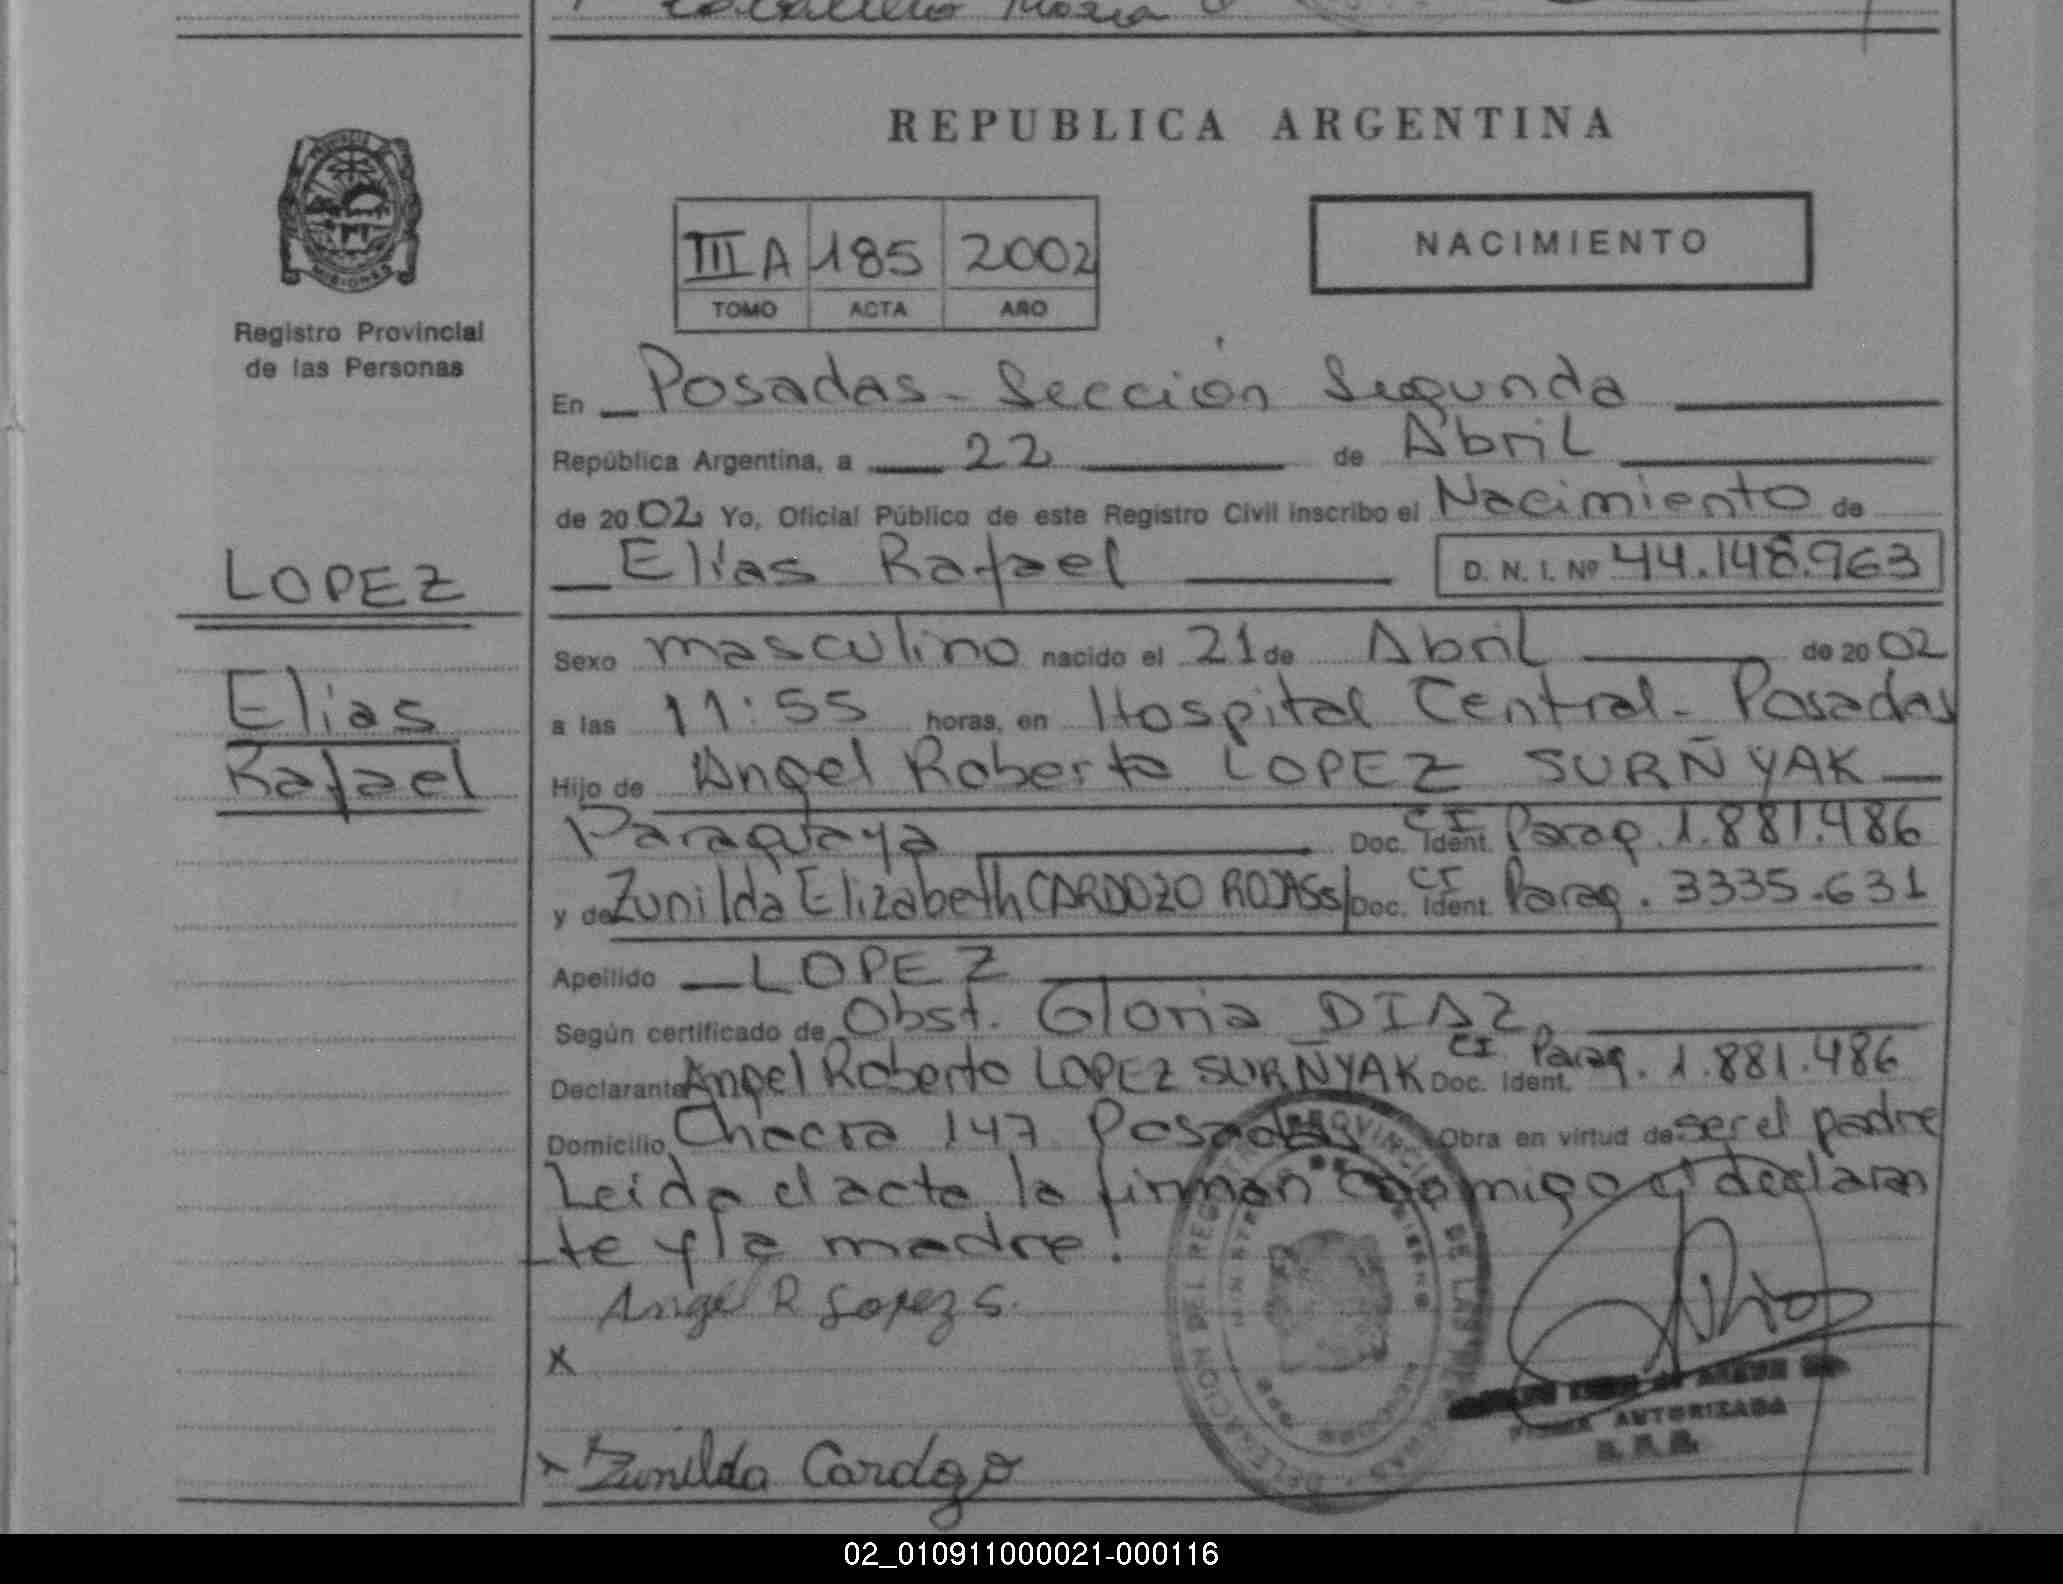 REPUBLICA ARGENTINA
Registro Provincial
de las Personas
III A 185 2002
TOMO ACTA AÑO
NACIMIENTO
En Posadas - Sección Segunda
República Argentina, a 22 de Abril
de 2002 Yo, Oficial Público de este Registro Civil inscribo el Nacimiento de
Elías Rafael D. N. I. Nº 44.148.963
LOPEZ
Elias
Rafael
Sexo masculino nacido el 21 de Abril de 2002
a las 11:55 horas, en Hospital Central - Posadas
Hijo de Angel Roberto LOPEZ SURÑYAK
Paraguaya Doc. Ident. CI Parag. 1.881.486
y de Zunilda Elizabeth CARDOZO ROJAS Doc. Ident. CI Parag. 3335.631
Apellido LOPEZ
Según certificado de Obst. Gloria DIAZ
Declarante Angel Roberto LOPEZ SURÑYAK Doc. Ident. CI Parag. 1.881.486
Domicilio Chacra 147 Posadas Obra en virtud de ser el padre
Leida el acta la firman conmigo el declaran
te y la madre!
Angel R Lopez S.
x
x Zunilda Cardozo
DELEGACION DEL REGISTRO PROVINCIAL DE LAS PERSONAS
FIRMA AUTORIZADA
02_010911000021-000116